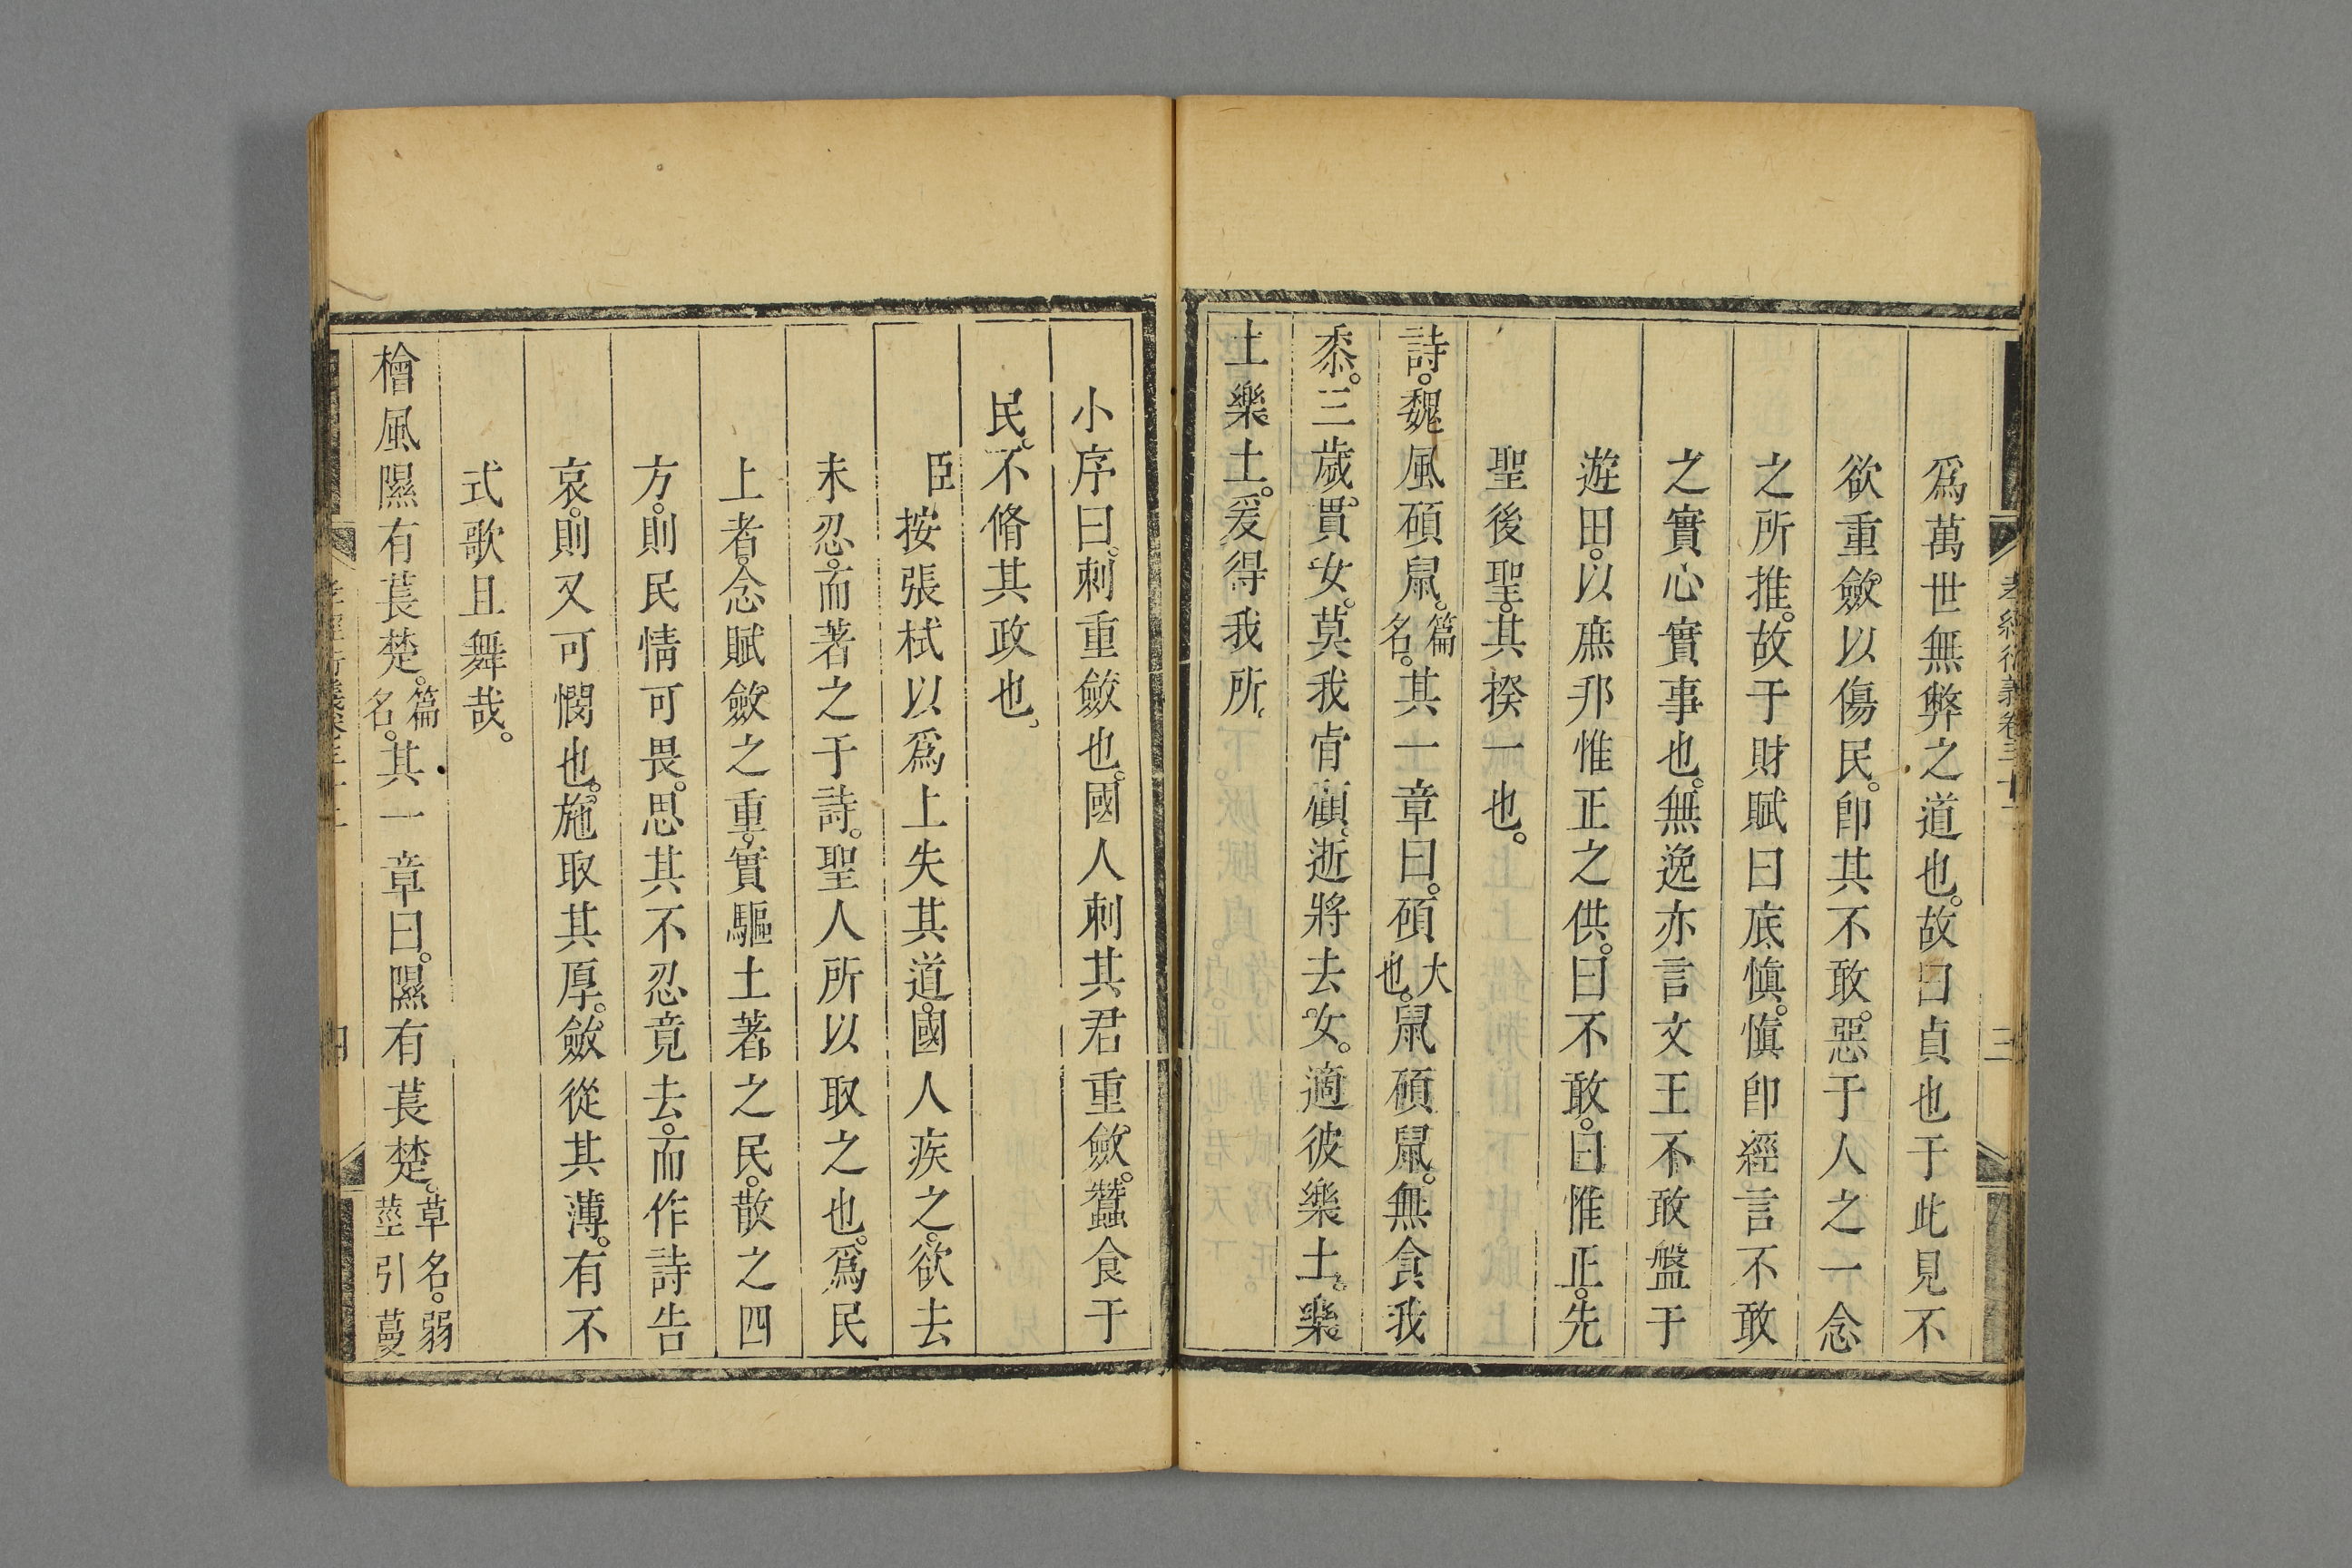 爲萬世無弊之道也。故曰貞也于此見不
欲重斂以傷民。卽其不敢。惡于人之一念
之所推。故于財賦曰底愼。愼卽經言不敢
之實心實事也。無逸亦言文王不敢盤于
遊田。以庶邦惟正之供。曰不敢。曰惟正。先
聖後聖。其揆一也。
詩。魏風碩鼠。篇名。其一章曰。碩大也。鼠碩鼠。無食我
黍。三歲。貫女。莫我肯顧。逝將去女。適彼樂土。樂
土樂土。爰得我所。
小序曰。刺重斂也。國人刺其君重斂。蠶食于
民。不脩其政也。
臣按張栻以爲上失其道。國人疾之。欲去
未忍。而著之于詩。聖人所以取之也。爲民
上者。念賦斂之重。實驅土著之民。散之四
方。則民情可畏。思其不忍竟去。而作詩告
哀。則又可憫也。施取其厚。斂從其薄。有不
式歌且舞哉。
檜風隰有萇楚。篇名。其一章曰。隰有萇楚。草名。弱莖引蔓
孝經衍義卷三十二
三
四